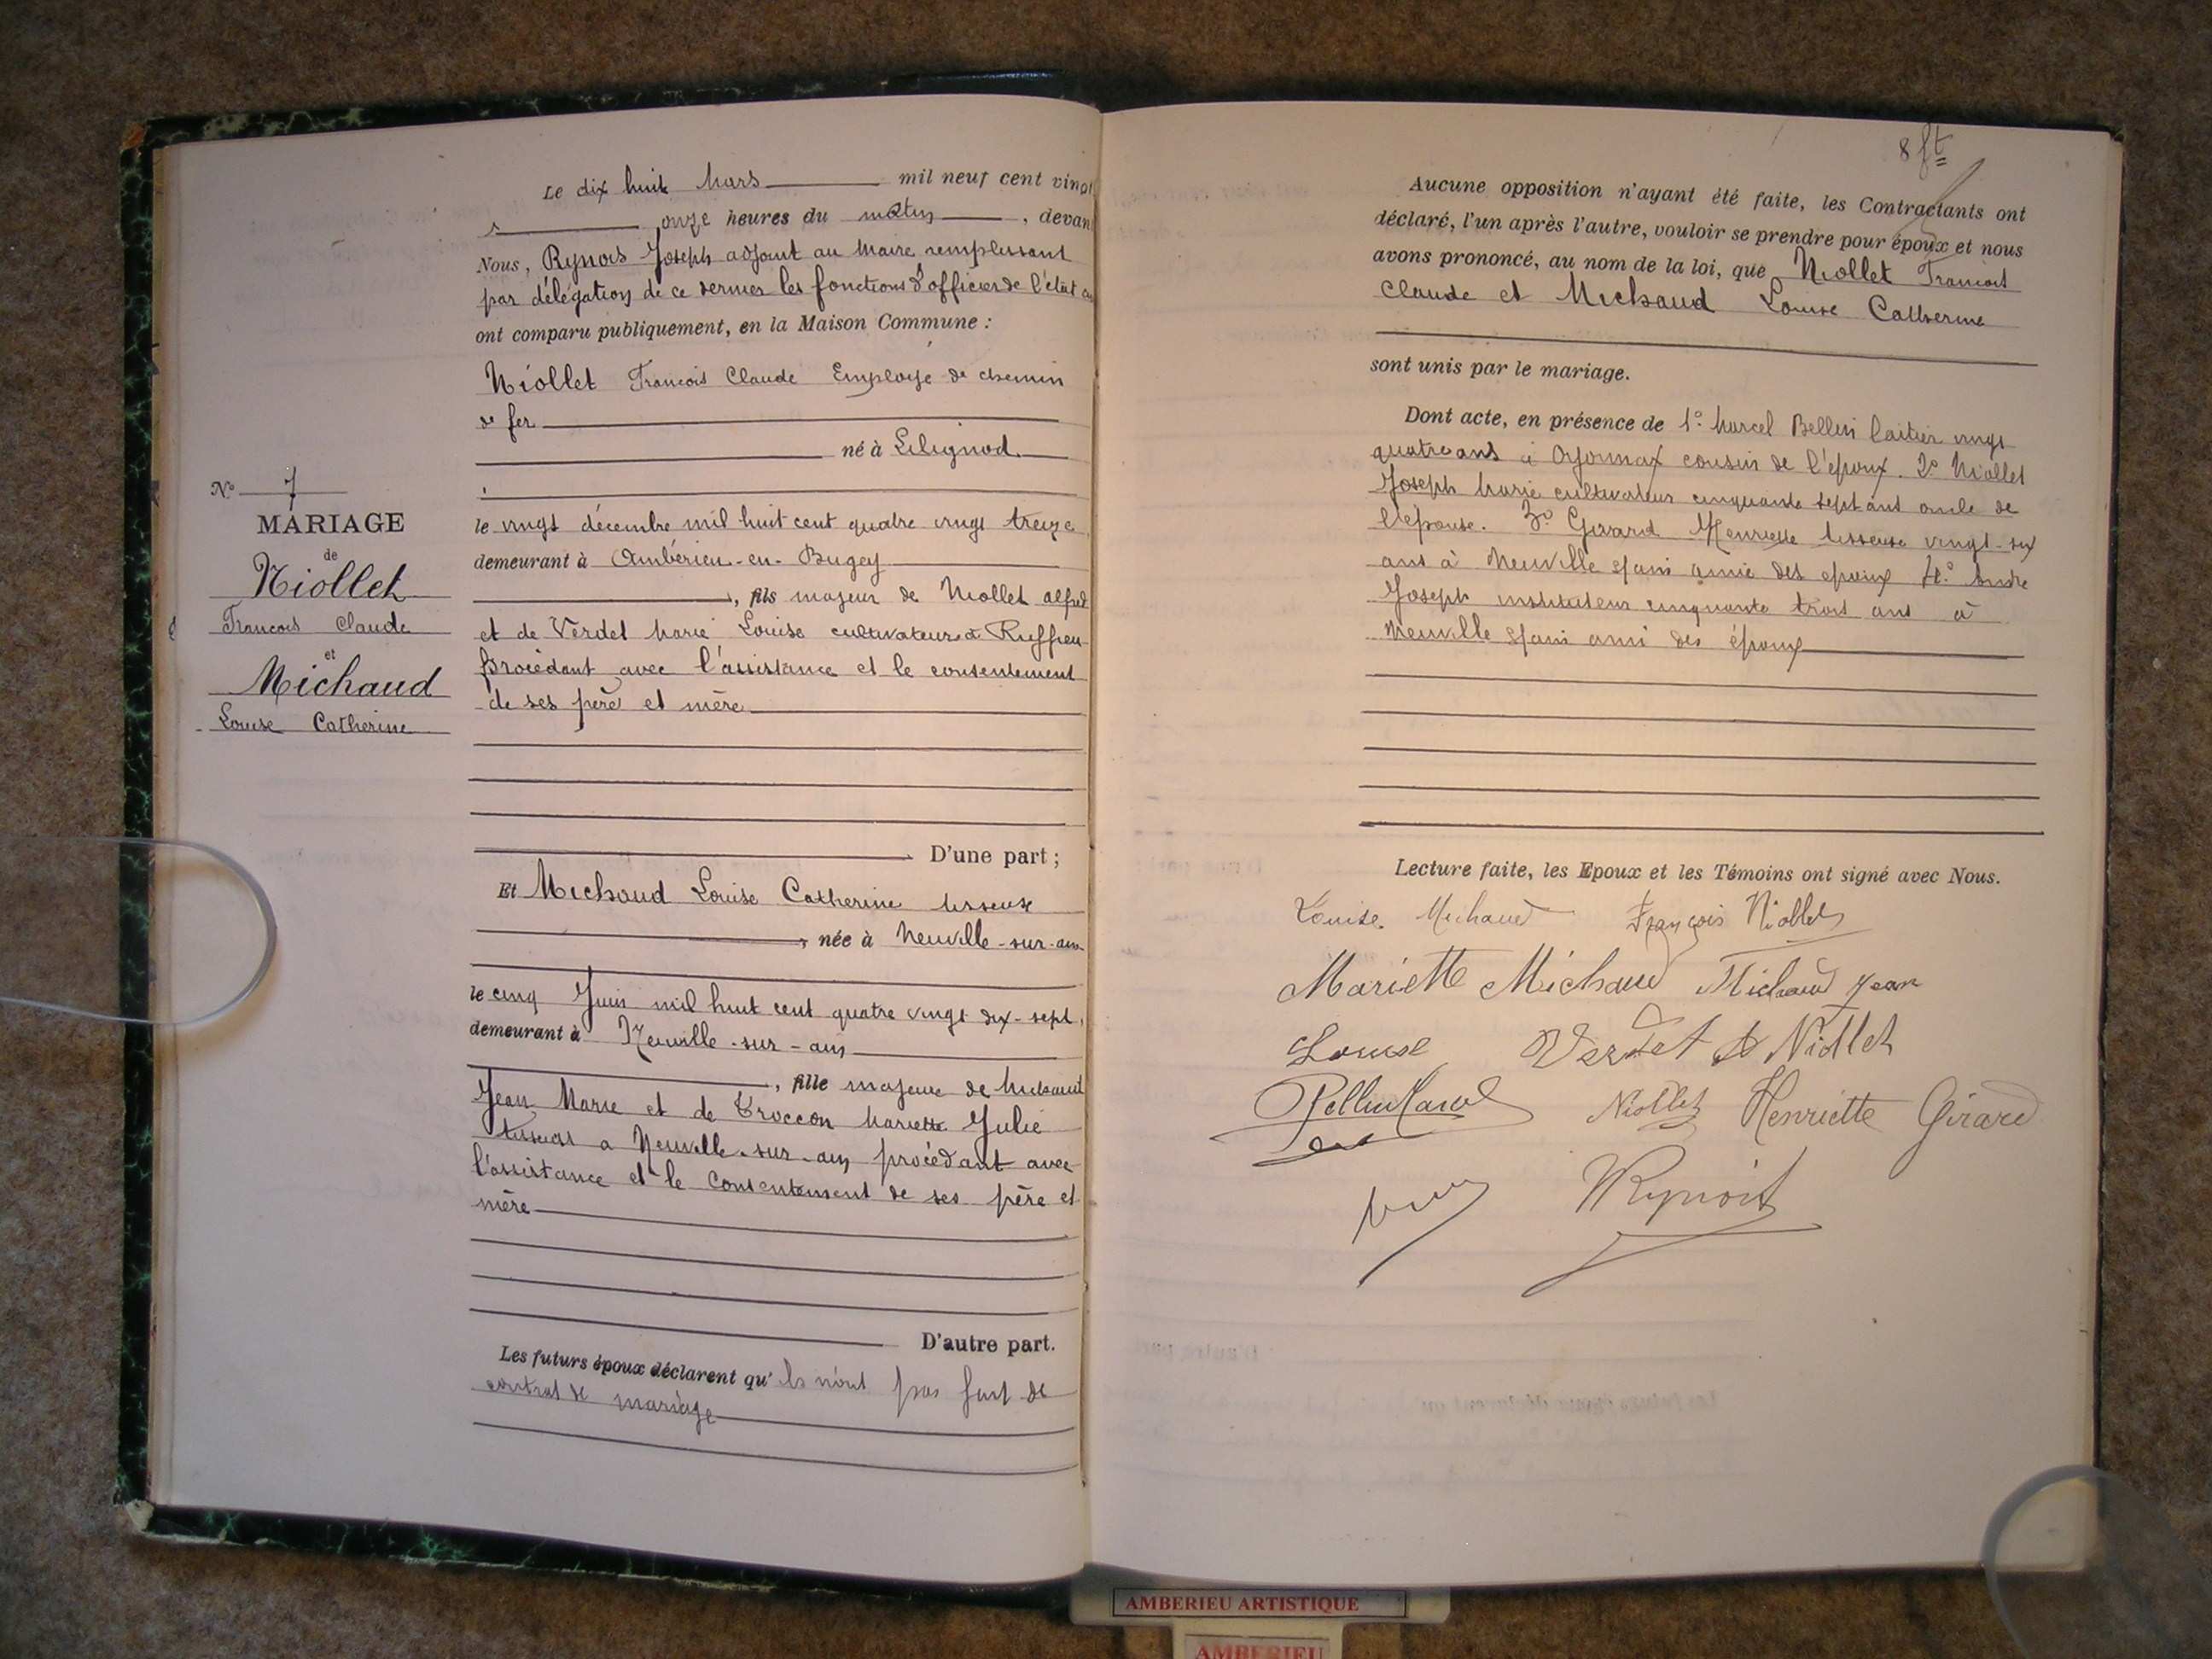 Le dix huit Mars mil neuf cent vingt
onze heures du matin, devant
Nous, Rynois Joseph adjoint au Maire remplissant
par délégation de ce dernier les fonctions d'officier de l'état
ont comparu publiquement, en la Maison Commune :
Niollet Francois Claude Employé de chemin
de fer
né à Lilignod.
le vingt décembre mil huit cent quatre vingt treize
demeurant à Ambérieu-en-Bugey
, fils majeur de Niollet alfred
et de Verdet Marie Louise cultivateurs à Ruffieu
procédant avec l'assistance et le consentement
de ses père et mère
D'une part ;
Nº 7
MARIAGE
de
Niollet
Francois Claude
et
Michaud
Louise Catherine
Et Michaud Louise Catherine tisseuse
, née à Neuville-sur-ain
le cinq Juin mil huit cent quatre vingt dix-sept,
demeurant à Neuville-sur-ain
, fille majeure de Michaud
Jean Marie et de Troccon Mariette Julie
à Neuville-sur-ain procédant avec
l'assistance et le consentement de ses père et
mère
D'autre part.
Les futurs époux déclarent qu'ils n'ont pas fait de
contrat de mariage
8 ft
Aucune opposition n'ayant été faite, les Contractants ont
déclaré, l'un après l'autre, vouloir se prendre pour époux et nous
avons prononcé, au nom de la loi, que Niollet Francois
Claude et Michaud Louise Catherine
sont unis par le mariage.
Dont acte, en présence de 1º Marcel Bellin laitier vingt
quatre ans à Oyonnax cousin de l'époux. 2º Niollet
Joseph Marie cultivateur cinquante sept ans oncle de
l'épouse. 3º Girard Henriette tisseuse vingt-six
ans à Neuville s/ain amie des époux 4º Andre
Joseph instituteur cinquante trois ans à
Neuville s/ain ami des époux
Lecture faite, les Epoux et les Témoins ont signé avec Nous.
Louise Michaud François Niollet
Mariette Michaud Michaud Jean
Louise Verdet A Niollet
Bellin Marcel Niollet Henriette Girard
Rynois
AMBERIEU ARTISTIQUE
AMBERIEU